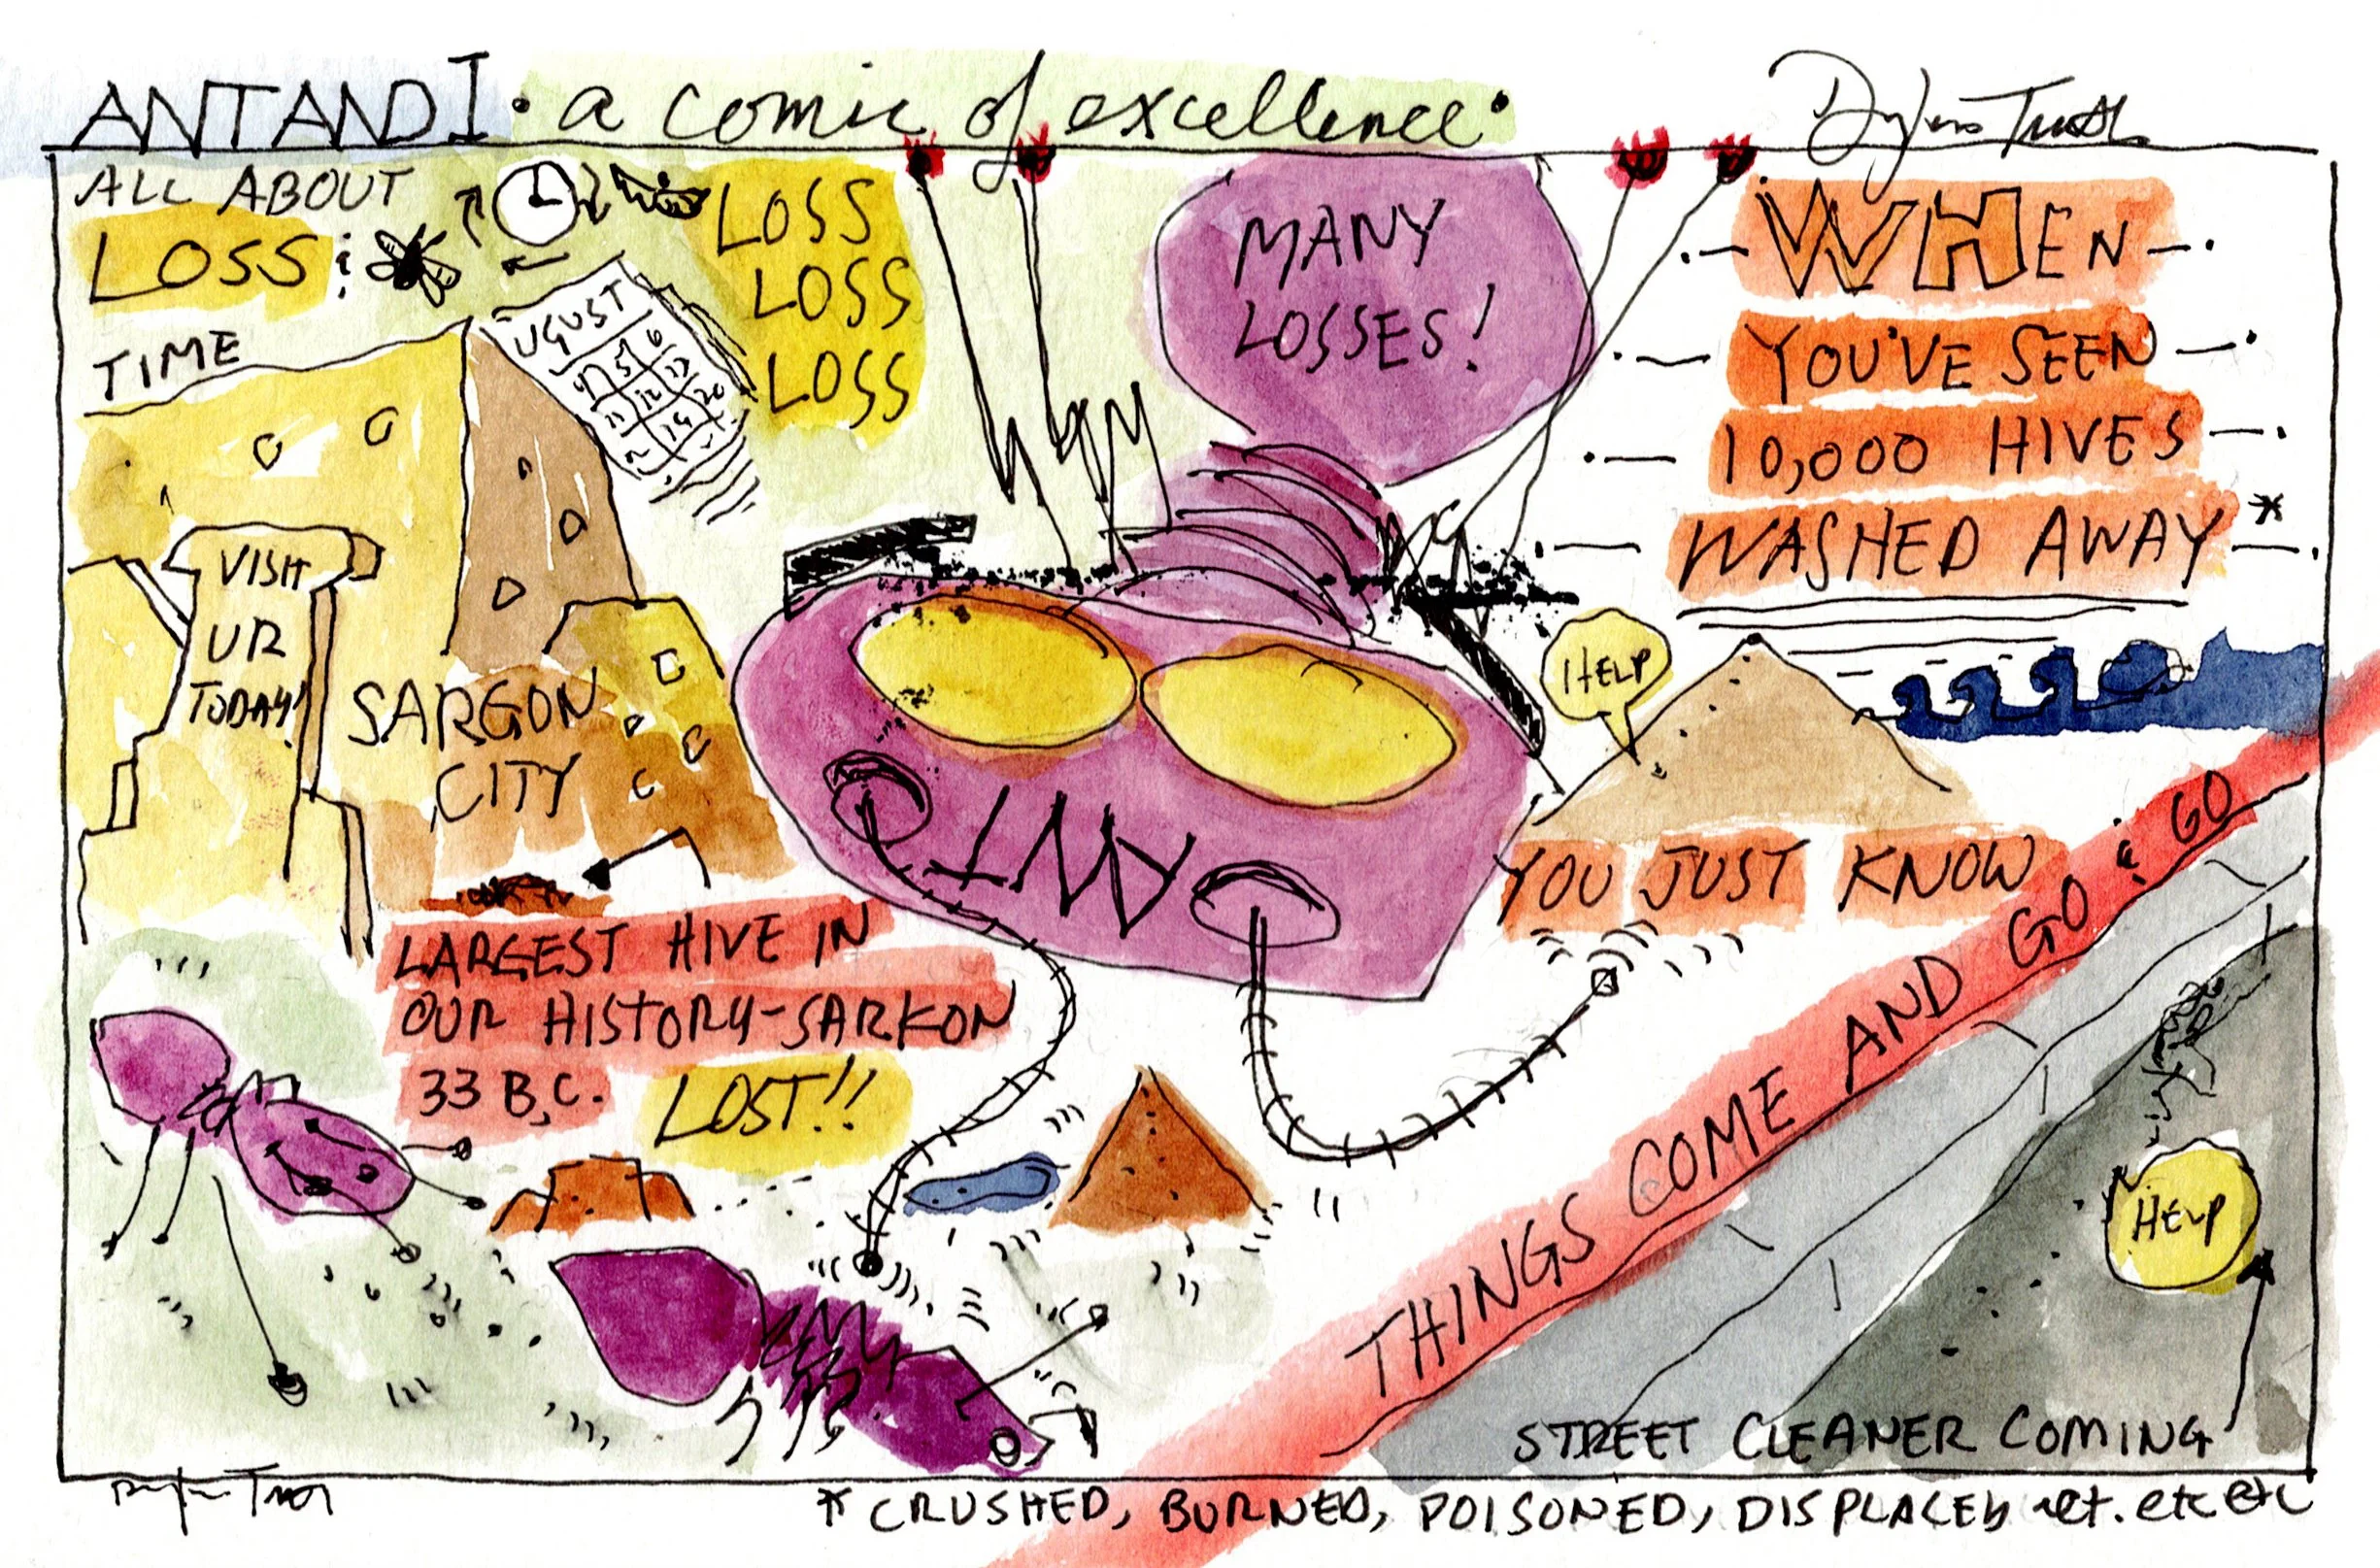 ANTANDI. a comic of excellence.
ALL ABOUT
LOSS:
TIME
UGUST
4 5 6
11 12 13
19 20
LOSS
LOSS
LOSS
MANY
LOSSES!
WHEN
YOU'VE SEEN
10,000 HIVES
WASHED AWAY *
VISIT
UR
TODAY!
SARGON
CITY
HELP
ANT
YOU JUST KNOW
LARGEST HIVE IN
OUR HISTORY-SARKON
33 B.C. LOST!!
THINGS COME AND GO & GO
HELP
STREET CLEANER COMING
* CRUSHED, BURNED, POISONED, DISPLACED ect. etc etc